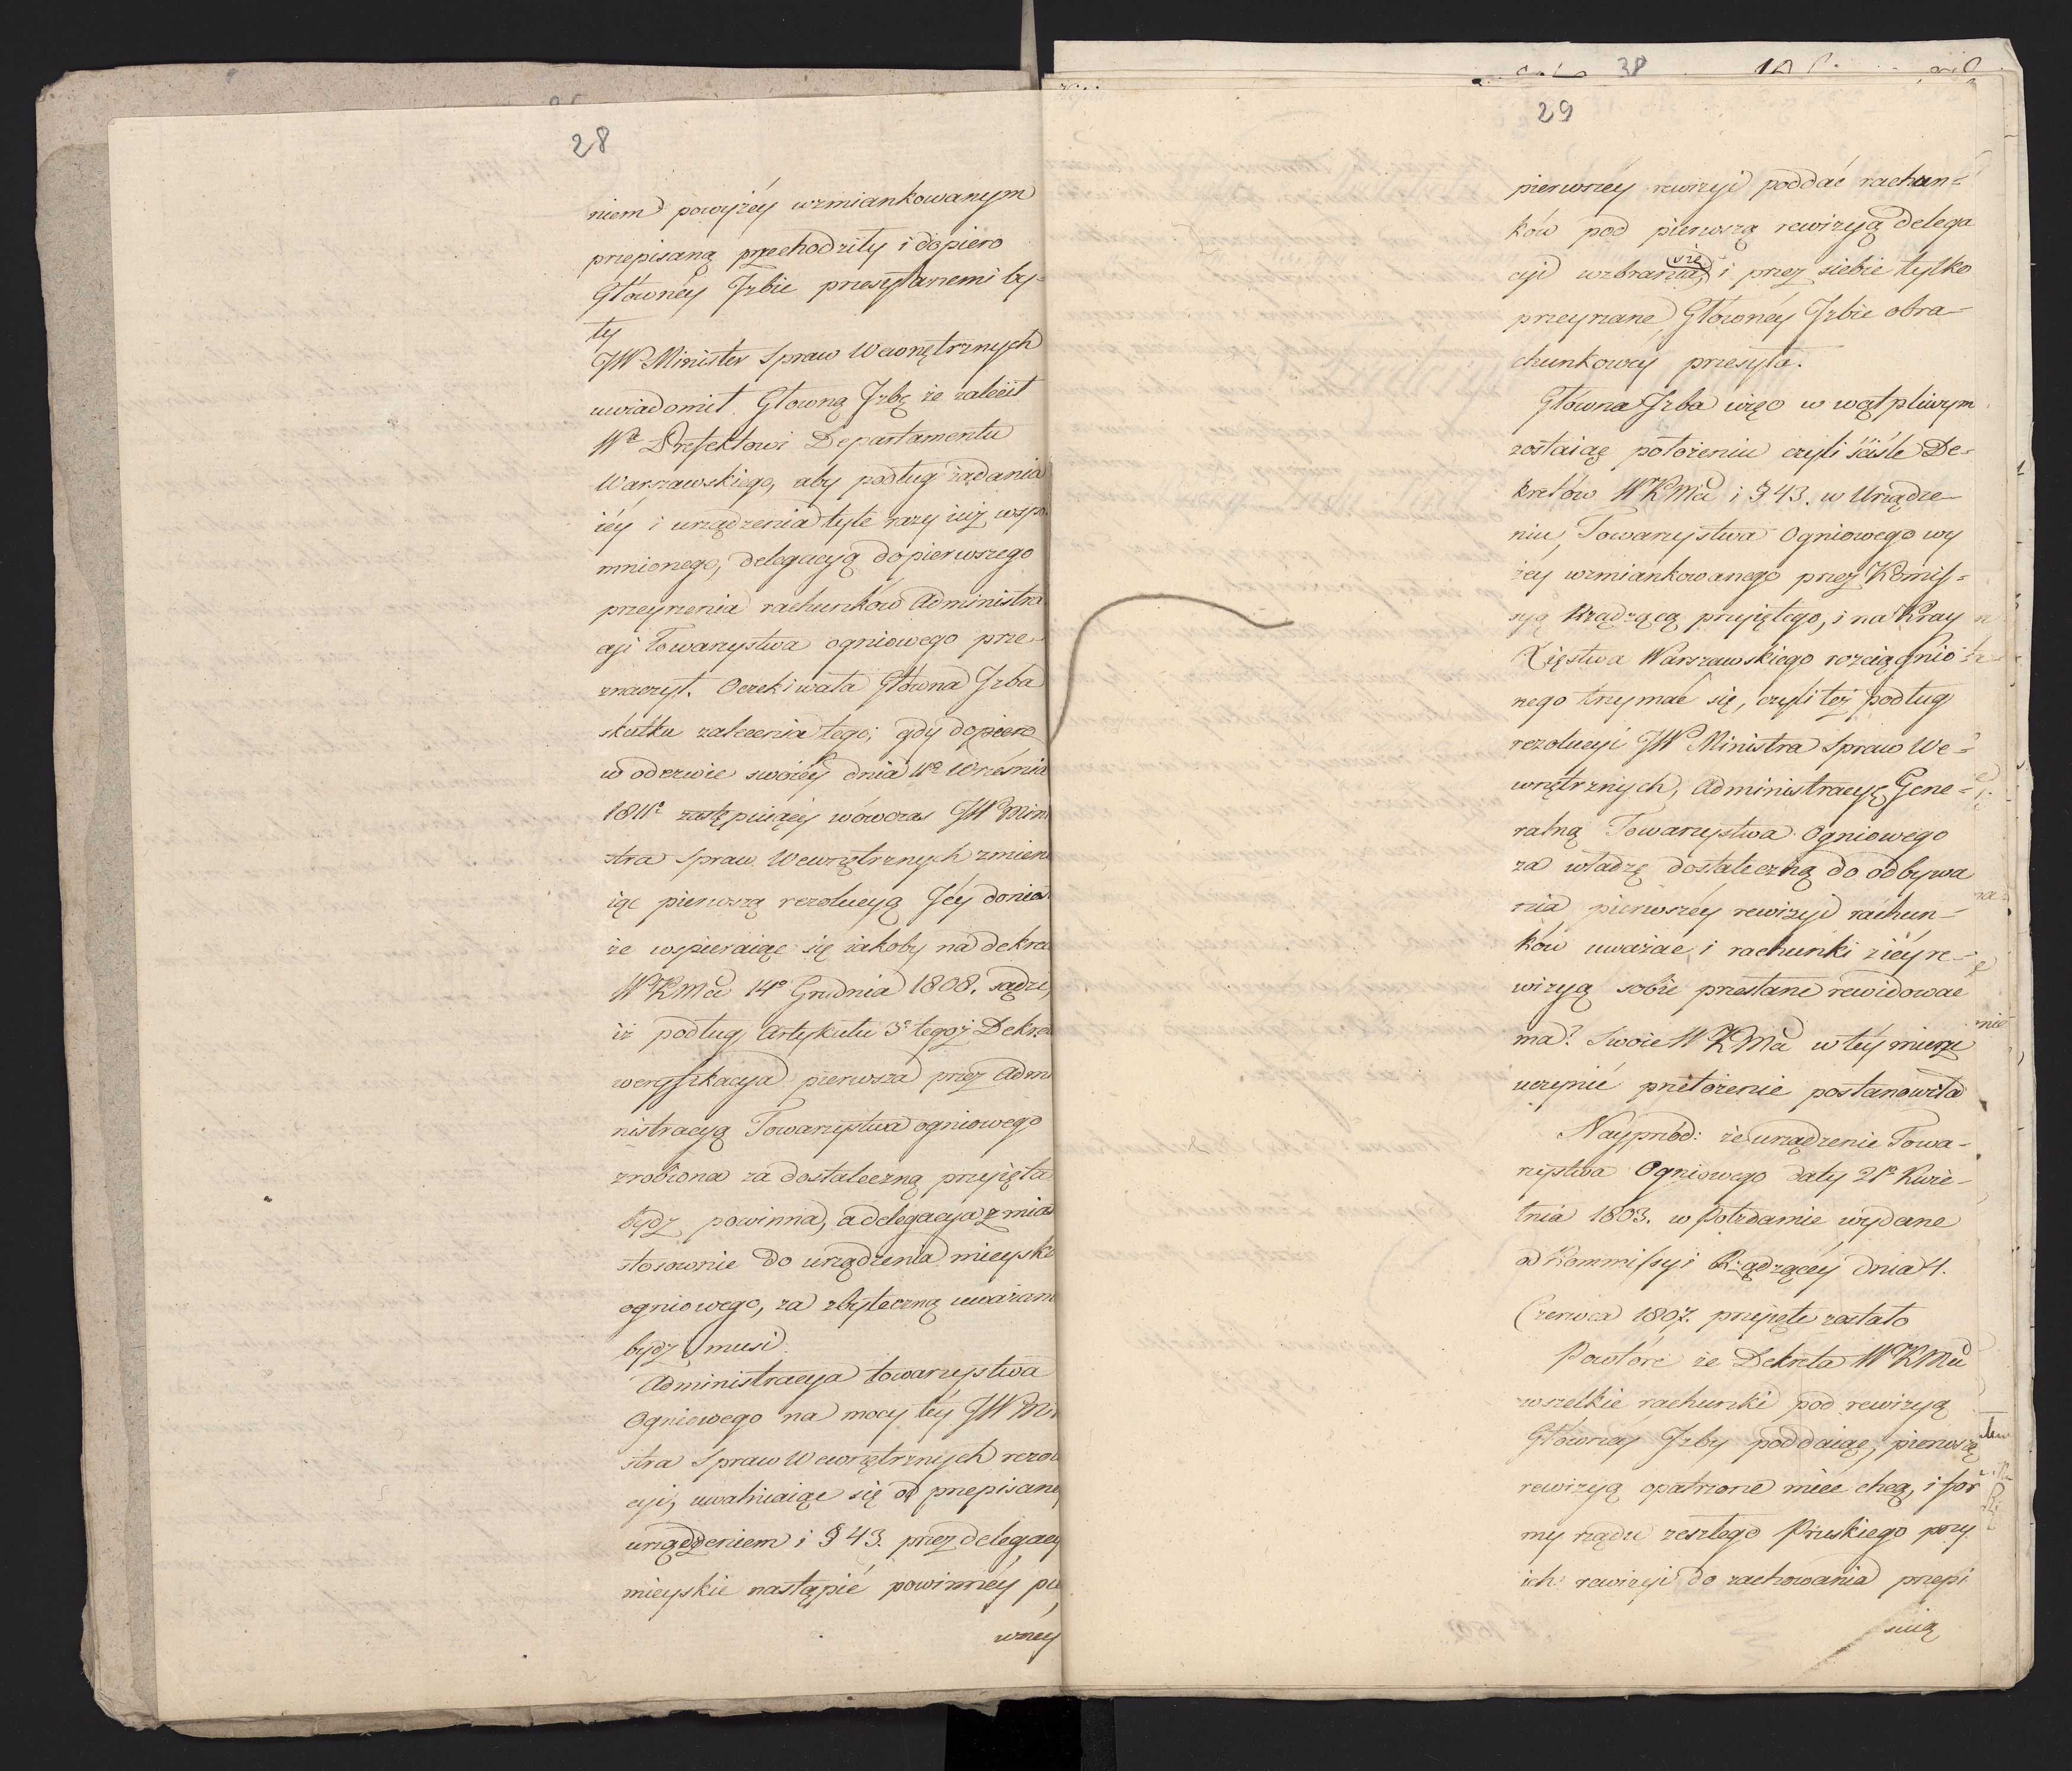 28
niem powyżéy wzmiankowanym
przepisaną przechodziły i dopiero
Głównéy Izbie przesyłanemi by-
ły
JW Minister Spraw Wewnętrznych
uwiadomił Głowną Izbę że zalecił
Wu Prefektowi Departamentu
Warszawskiego, aby podług żądania
iéy i urządzenia tyle razy iuż wspo.
mnionego, delegacyą do pierwszego
przeyrzenia rachunków Administra
cyi Towarzystwa ogniowego prze-
znaczył. Oczekiwała Główna Izba
skutku zalecenia tego; gdy dopiero
w odezwie swoiéy dnia 11o Wrześnie
1811o zastępuiący wówczas JW Mini
stra Spraw Wewnętrznych zmieni
iąc pierwszą rezolucyą Jéy doniosł
że wspieraiąc się iakoby na dekre
WKMci 14o Grudnia 1808. sądzi,
iż podług Artykułu 3o tegoż Dekre
weryfikacya pierwsza przez Admi
nistracyą Towarzystwa ogniowego
zrobiona za dostateczną przyięta
bydź powinna, a delegacya z mias
stosownie do urządzenia mieysko
ogniowego, za zbyteczną uważan
bydź musi.
Administracya towarzystwa
Ogniowego na mocy téy JW Mi
stra Spraw Wewnętrznych rezol
cyi, uwalniaiąc się od przepisané
urządzeniem i § 43. przez delegacy
mieyskie nastąpić powinnéy pie
wszey
38
29
pierwszéy rewizyi poddać rachun=
ków pod pierwszą rewizyą delega
cyi wzbrania się i przez siebie tylko
przeyrzane Głównéy Izbie obra-
chunkowey przesyła.
Główna Izba więc w wątpliwym
zostaiąc położeniu czyli ściśle De-
kretów WKMci i § 43. w Urządze-
niu, Towarzystwa Ogniowego wy
żéy wzmiankowanego przez Komis=
syą Rządzącą przyiętego, i na Kray
Xięstwa Warszawskiego rozciągnio
nego trzymać się, czyli też podług
rezolucyi JW Ministra Spraw We=
wnętrznych, Administracyę Gene=
ralną Towarzystwa Ogniowego
za władzę dostateczną do odbywa
nia pierwszéy rewizyi rachun-
ków uważać i rachunki z iéy re-
wizyą sobie przesłane rewidować
ma? Swoie WKMci w téy mierze
uczynić przełożenie postanowiła
Nayprzód: że urządzenie Towa-
rzystwa Ogniowego daty 21o Kwie-
tnia 1803. w Potzdamie wydane
od Kommissyi Rządzącéy dnia 4.
Czerwca 1807. przyięte zostało
Powtóre że Dekreta WKMci
wszelkie rachunki pod rewizyą
Głównéy Izby poddaiąc, pierwszą
rewizyą opatrzone mieć chcą, i for
my rządu zeszłego Pruskiego przy
ich rewizyi do zachowania przepi
suią